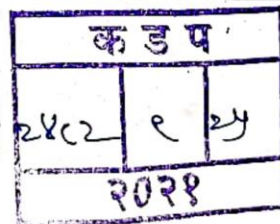 क ड प
२४८२ १ २५
२०२१